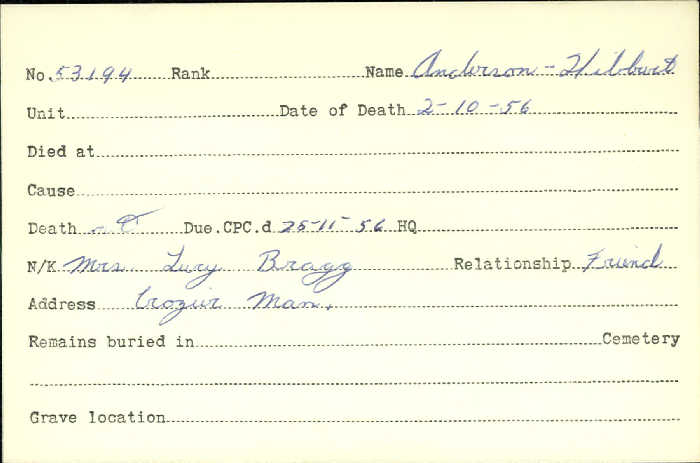 No. 53194 Rank Name Anderson - Hilbert
Unit Date of Death 2-10-56
Died at
Cause
Death Due. CPC.d 25-11-56 HQ
N/K Mrs. Lucy Bragg Relationship Friend
Address Crozier Man.
Remains buried in Cemetery
Grave location